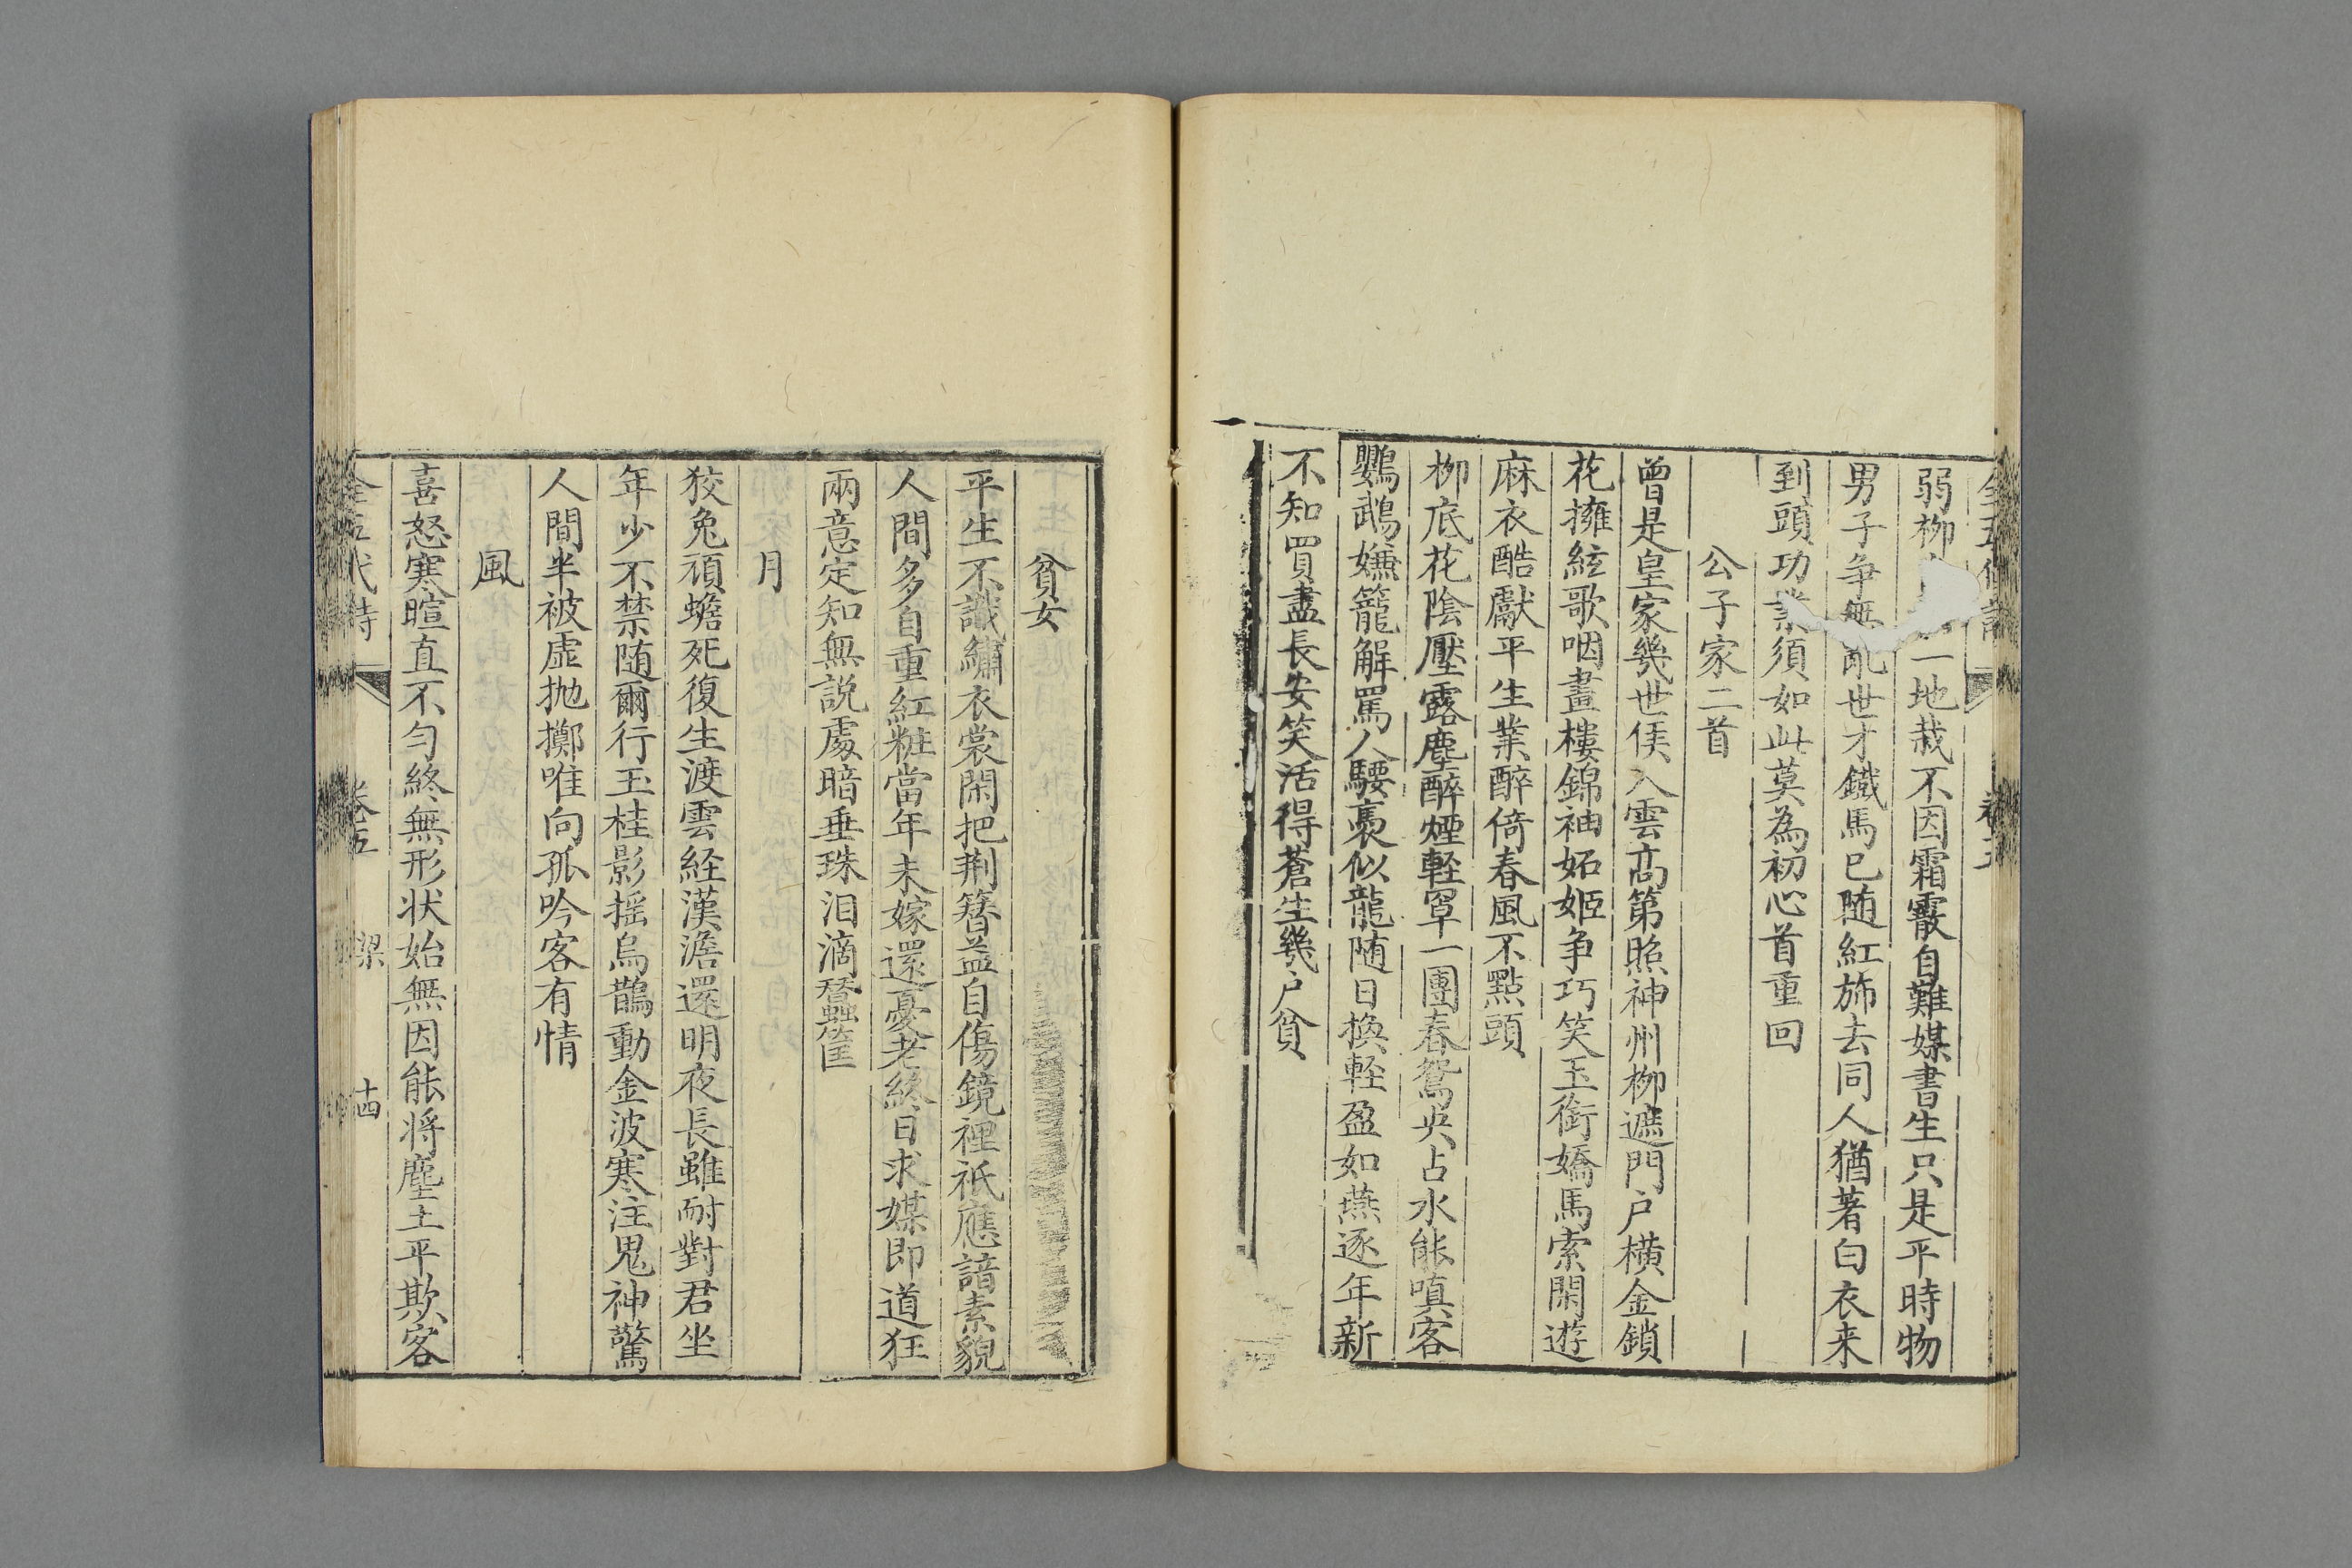 弱栁一地栽不因霜霰自難媒書生只是平時物
男子争無亂世才鐵馬已随紅斾去同人猶著白衣来
到頭功業須如此莫為初心首重回
公子家二首
曾是皇家幾世侯入雲高第照神州栁遮門户横金鎖
花擁絃歌咽畫樓錦袖妬姬争巧笑玉銜嬌馬索閑遊
麻衣酷獻平生業醉倚春風不點頭
栁底花陰壓露塵醉煙軽罩一團春鴛央占水能嗔客
鸚鵡嫌籠解罵人騕褭似龍随日換軽盈如燕逐年新
不知買盡長安笑活得蒼生幾户貧
貧女
平生不識繡衣裳閑把荆簪益自傷鏡裡祇應諳素貌
人間多自重紅粧當年未嫁還憂老終日求媒即道狂
兩意定知無説處暗垂珠泪滴蠶筐
月
狡兔頑蟾死復生渡雲経漢澹還明夜長雖耐對君坐
年少不禁随爾行玉桂影揺烏鵲動金波寒注鬼神驚
人間半被虚抛擲唯向孤吟客有情
風
喜怒寒暄直不勻終無形状始無因能将塵土平欺客
全五代詩 卷五 梁 十四